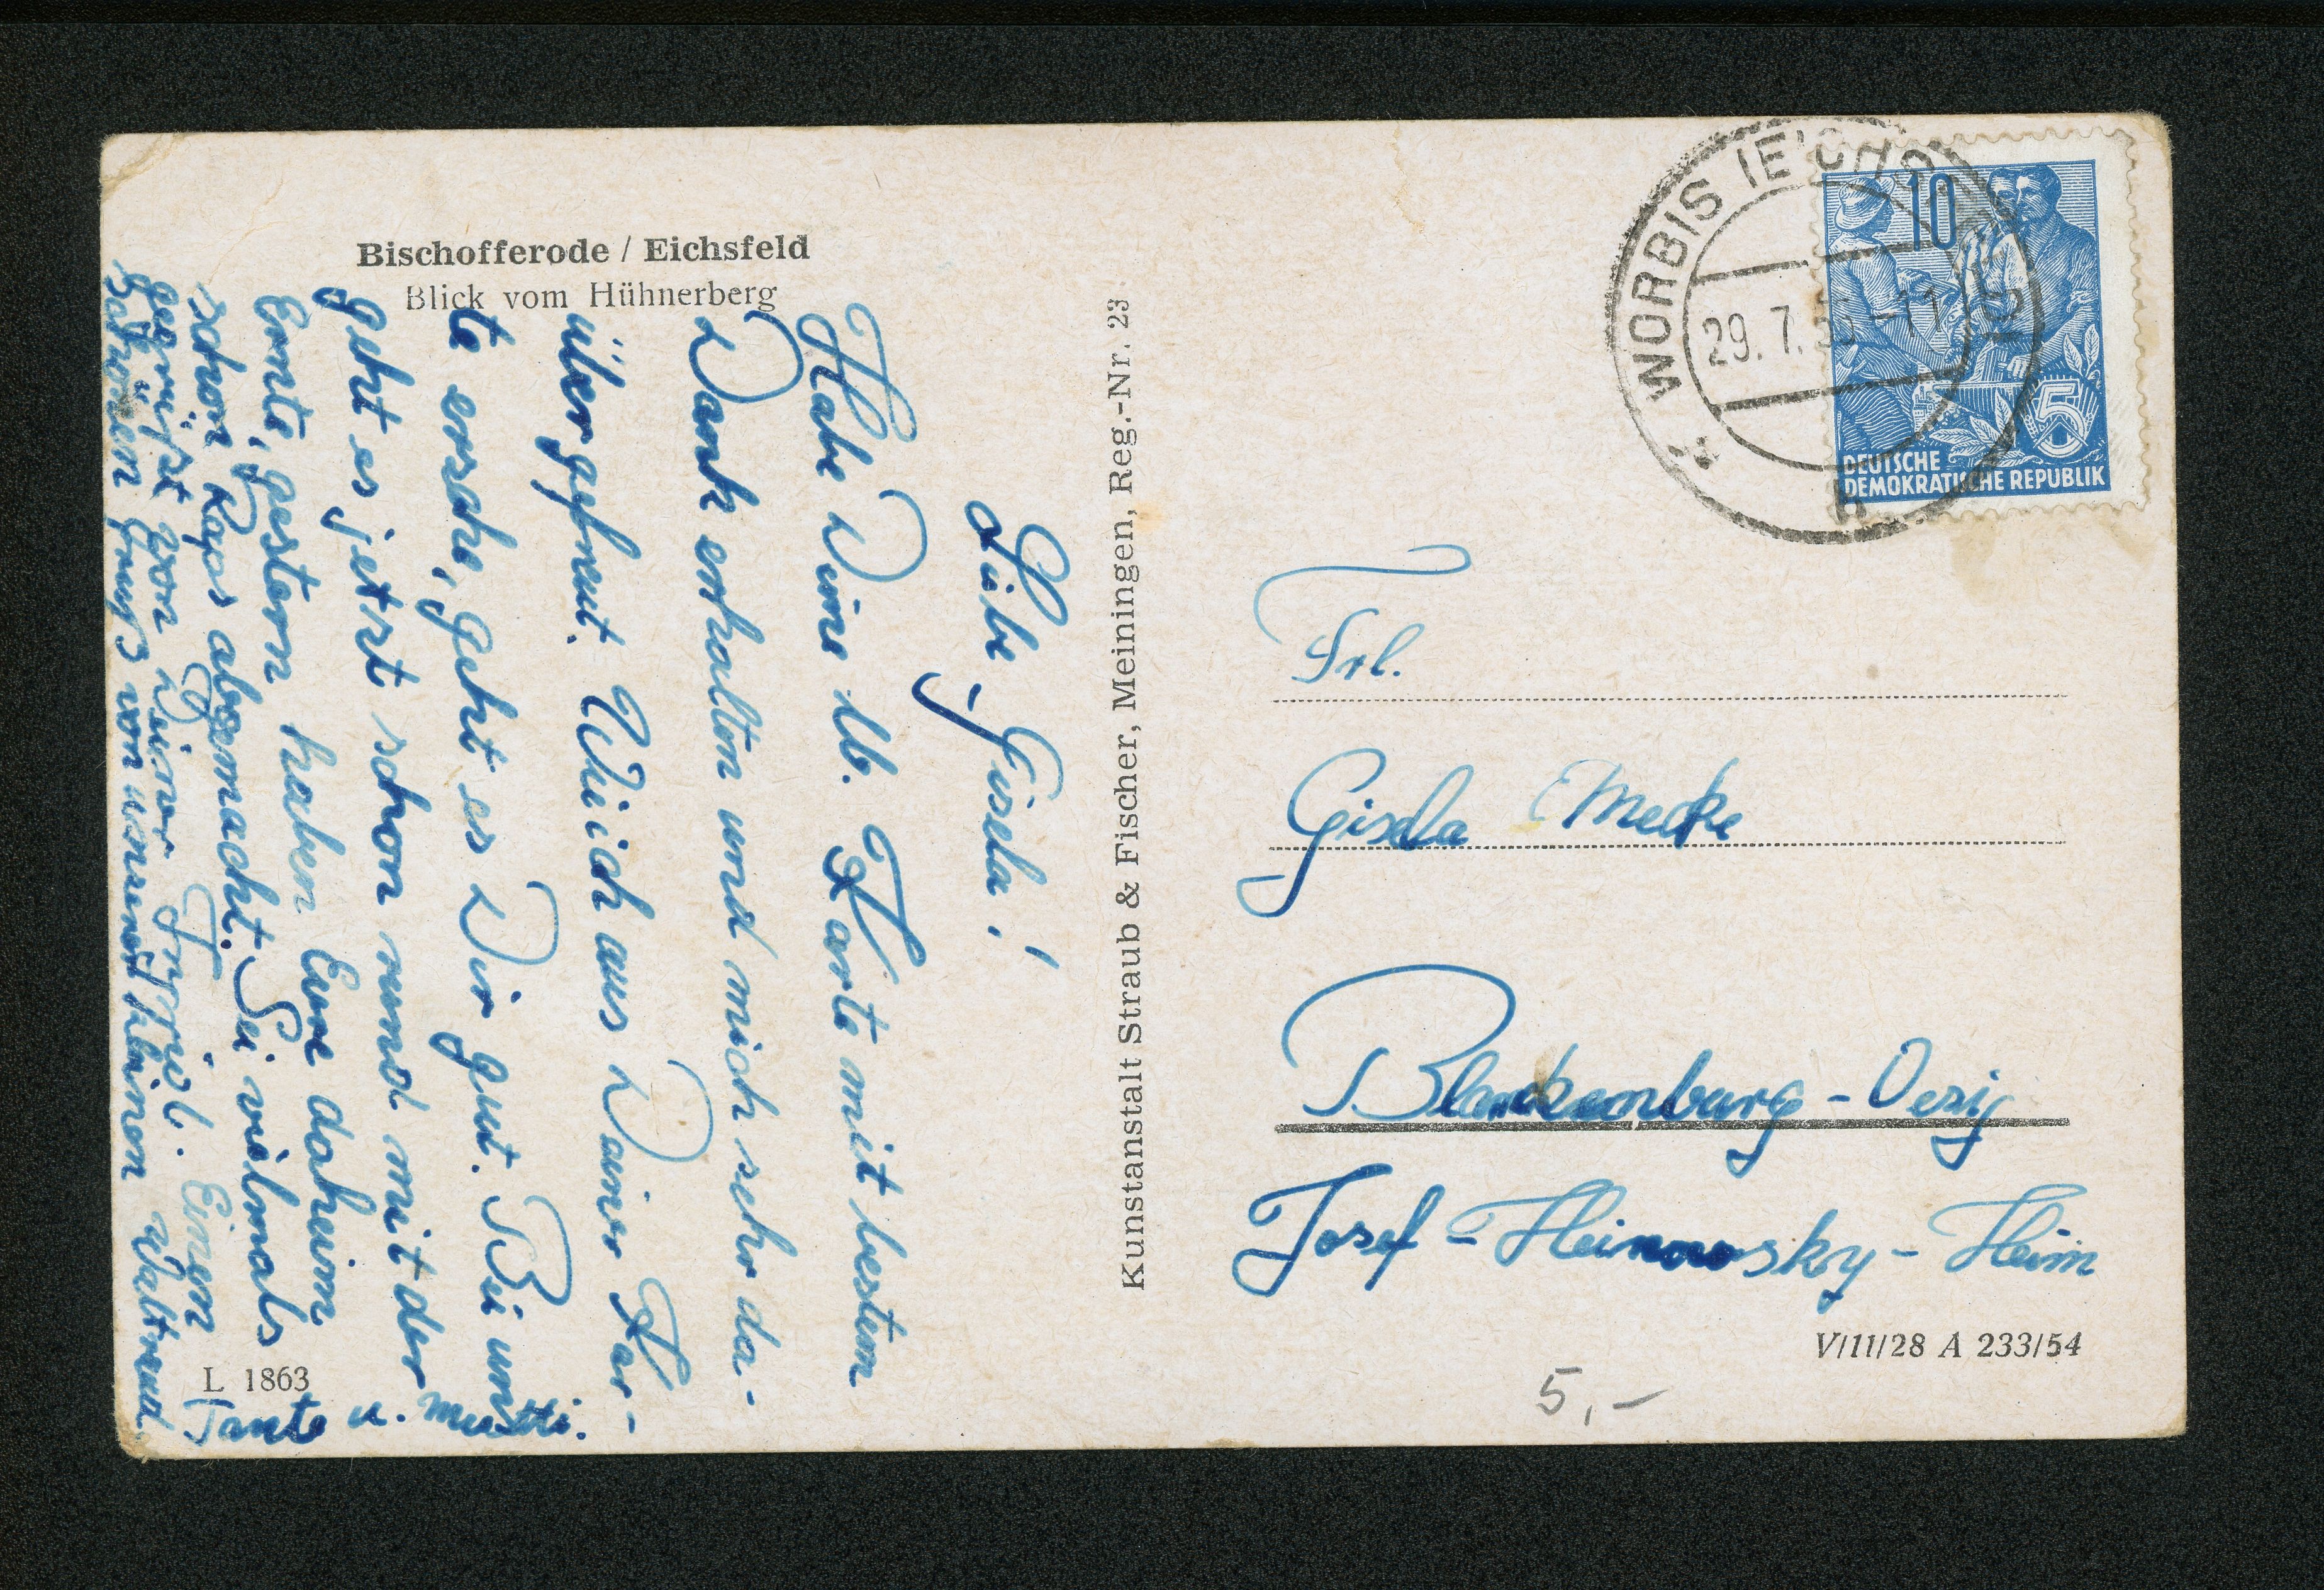 Bischofferode / Eichsfeld
Blick vom Hühnerberg
Liebe Gisela!
Habe Deine lb. Karte mit bestem
Dank erhalten und mich sehr da-
rüber gefreut. Wie ich aus Deiner Kar-
te ersehe, geht es Dir gut. Bei uns
geht es jetzt schon rund mit der
Ernte, gestern haben Eure daheim
schon Raps abgemacht. Sei vielmals
gegrüßt von Deiner Ingrid. Einen
schönen Gruß von unserer kleinen Waltraud
Tante u. Mutti.
L 1863
Kunstanstalt Straub & Fischer, Meiningen, Reg.-Nr. 23
WORBIS (EICHSF
29. 7. 55 -11
b
10
5
DEUTSCHE
DEMOKRATISCHE REPUBLIK
Frl.
Gisela Mecke
Blankenburg - Oesig
Josef - Heinowsky - Heim
V/11/28 A 233/54
5,-